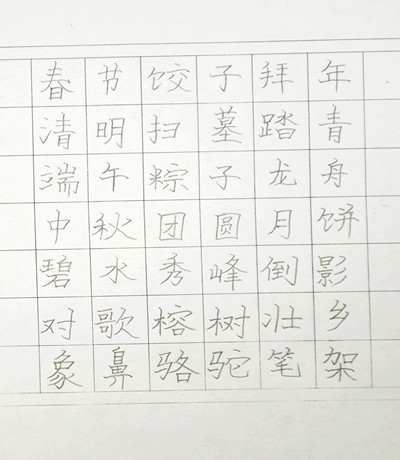 春节饺子拜年
清明扫墓踏青
端午粽子龙舟
中秋团圆月饼
碧水秀峰倒影
对歌榕树壮乡
象鼻骆驼笔架